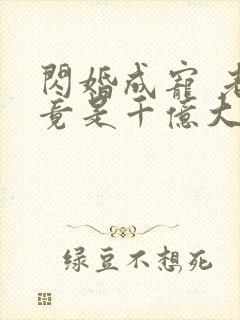 閃婚成寵 老
竟是千億大
绿豆不想死